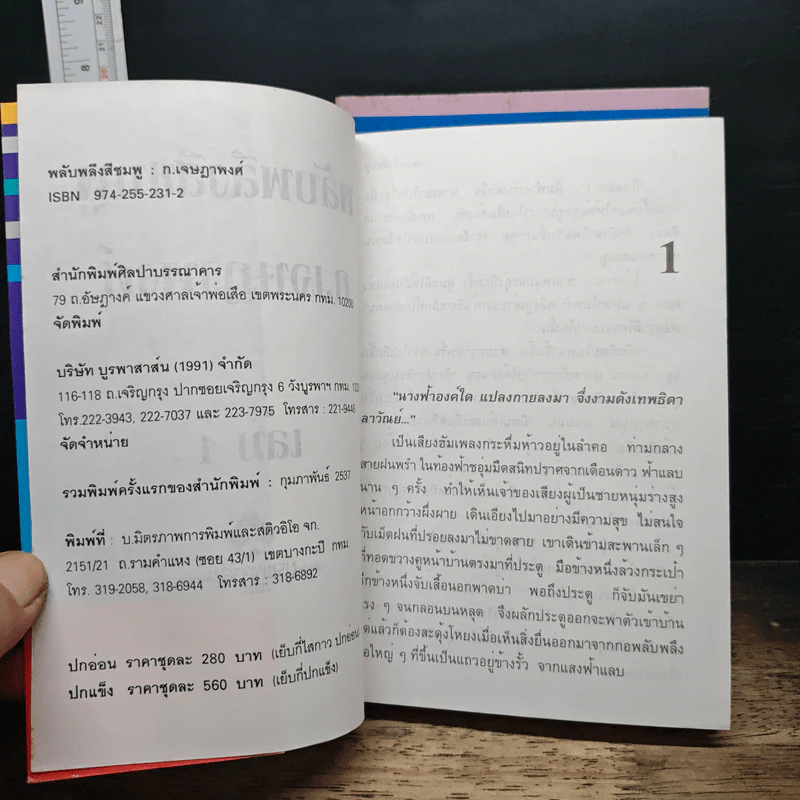 พลับพลึงสีชมพู : ก.เจษฎาพงศ์
ISBN 974-255-231-2
สำนักพิมพ์ศิลปาบรรณาคาร
79 ถ.อัษฎางค์ แขวงศาลเจ้าพ่อเสือ เขตพระนคร กทม. 10200
จัดพิมพ์
บริษัท บูรพาสาส์น (1991) จำกัด
116-118 ถ.เจริญกรุง ปากซอยเจริญกรุง 6 วังบูรพาฯ กทม.
โทร.222-3943, 222-7037 และ 223-7975 โทรสาร : 221-9446
จัดจำหน่าย
รวมพิมพ์ครั้งแรกของสำนักพิมพ์ : กุมภาพันธ์ 2537
พิมพ์ที่ : บ.มิตรภาพการพิมพ์และสติวอิโอ จก.
2151/21 ถ.รามคำแหง (ซอย 43/1) เขตบางกะปิ กทม.
โทร. 319-2058, 318-6944 โทรสาร : 318-6892
ปกอ่อน ราคาชุดละ 280 บาท (เย็บกี่ไสกาว ปกอ่อน)
ปกแข็ง ราคาชุดละ 560 บาท (เย็บกี่ปกแข็ง)
1
"นางฟ้าองค์ใด แปลงกายลงมา จึ่งงามดังเทพธิดา
ลาวัณย์..."
เป็นเสียงฮัมเพลงกระหึ่มห้าวอยู่ในลำคอ ท่ามกลาง
สายฝนพรำ ในท้องฟ้าชอุ่มมืดสนิทปราศจากเดือนดาว ฟ้าแลบ
นาน ๆ ครั้ง ทำให้เห็นเจ้าของเสียงผู้เป็นชายหนุ่มร่างสูง
หน้าอกกว้างผึ่งผาย เดินเอียงไปมาอย่างมีความสุข ไม่สนใจ
กับเม็ดฝนที่ปรอยลงมาไม่ขาดสาย เขาเดินข้ามสะพานเล็ก ๆ
ที่ทอดขวางคูหน้าบ้านตรงมาที่ประตู มือข้างหนึ่งล้วงกระเป๋า
อีกข้างหนึ่งจับเสื้อนอกพาดบ่า พอถึงประตู ก็จับมันเขย่า
แรง ๆ จนกลอนบนหลุด จึงผลักประตูออกจะพาตัวเข้าบ้าน
แต่แล้วก็ต้องสะดุ้งโหยงเมื่อเห็นสิ่งยื่นออกมาจากกอพลับพลึง
กอใหญ่ ๆ ที่ขึ้นเป็นแถวอยู่ข้างรั้ว จากแสงฟ้าแลบ